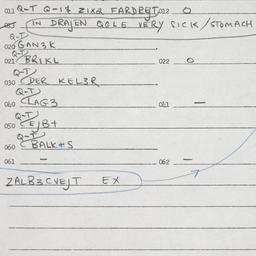 011 Q-T Q-14 ZIXQ FARDBEJT 012 O
013 (IN DRAJEN QGLE VERY SICK / STOMACH
Q-T
020 GAN3K
Q-T
021 BRIKL 022 O
Q-T
030 DER KEL3R
Q-T
040 LAG3 041 —
Q-T
050 EJB+
Q-T
060 BALK+S
061 — 062 —
ZALB3CVEJT EX